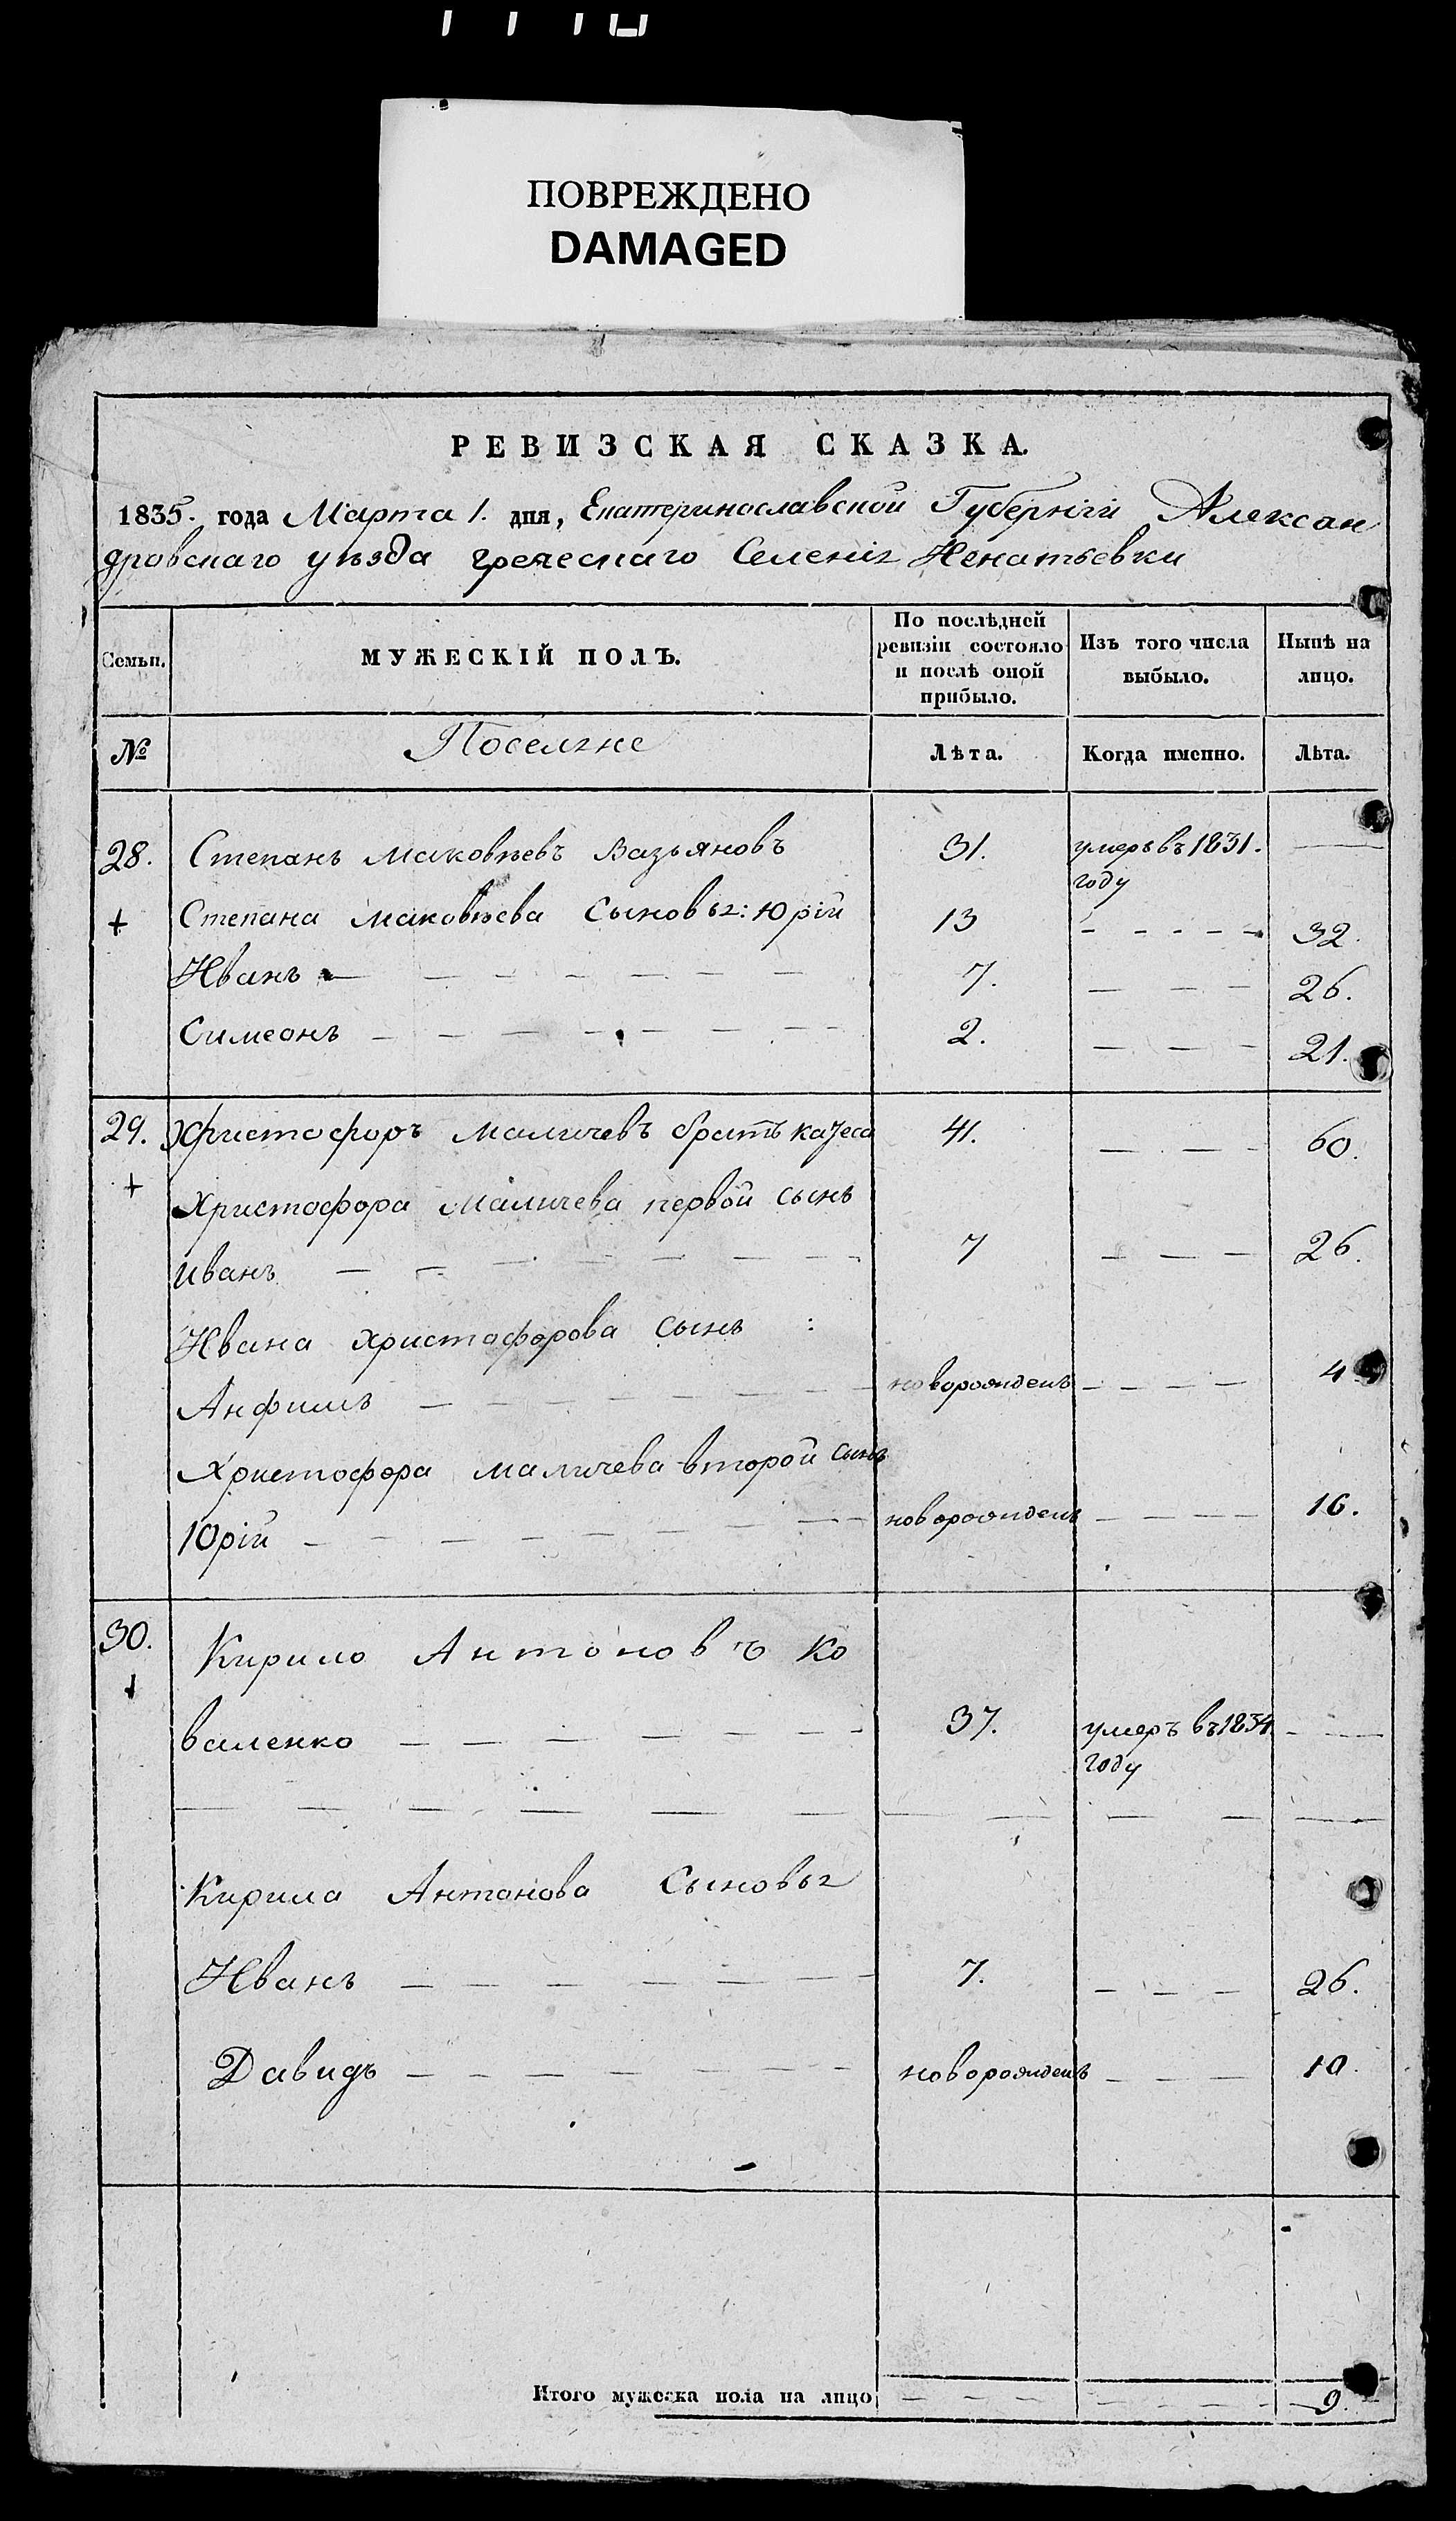 ПОВРЕЖДЕНО
DAMAGED
РЕВИЗСКАЯ СКАЗКА.
1835. года Марта 1. дня, Екатеринославской Губерніи Алексан
дровскаго уѣзда греческаго Селенія Игнатьевки
Семьи.
МУЖЕСКІЙ ПОЛЪ.
По послѣдней
ревизіи состояло
и послѣ оной
прибыло.
Изъ того числа
выбыло.
Нынѣ на
лицо.
№
Поселяне
Лѣта.
Когда именно.
Лѣта.
28. Степанъ Маковѣевъ Вазьяновъ 31. умеръ въ 1831.
году
+ Степана Маковѣева Сыновья: Юрій 13 32.
Иванъ 7. 26.
Симеонъ 2. 21.
29. Христофоръ Маличевъ братъ 41. 60.
+ Христофора Маличева первой сынъ
Иванъ 7 26.
Ивана Христофорова Сынъ :
Анфимъ новорожденъ 4
Христофора Маличева второй сынъ
Юрій новорожденъ 16.
30. Кирило Антоновъ Ко
+
валенко 37. умеръ въ 1834
году
Кирила Антонова Сыновья
Иванъ 7. 26.
Давидъ новорожденъ 10.
Итого мужеска пола на лицо 9.